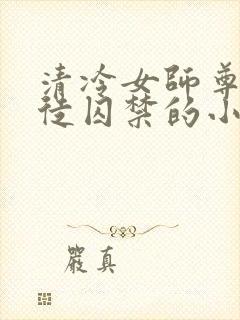 清冷女師尊
徒囚禁的小
嚴真